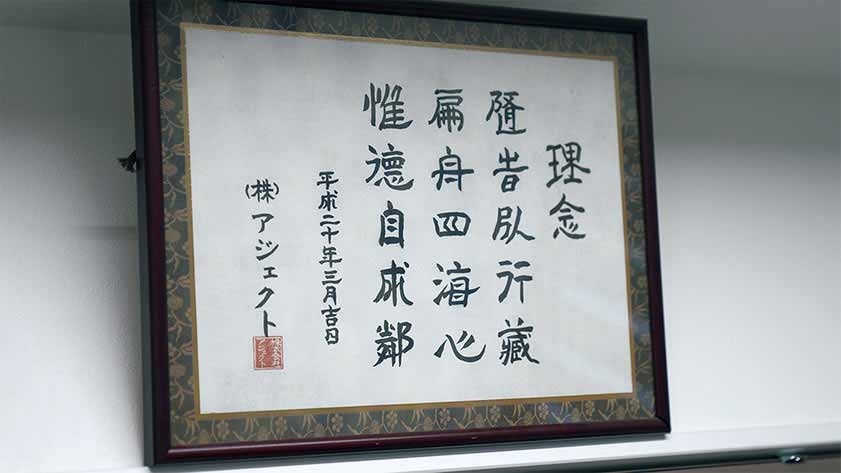 理念
行藏
扁舟四海心
惟德自成鄰
平成二十年三月吉日
(株)アジェクト